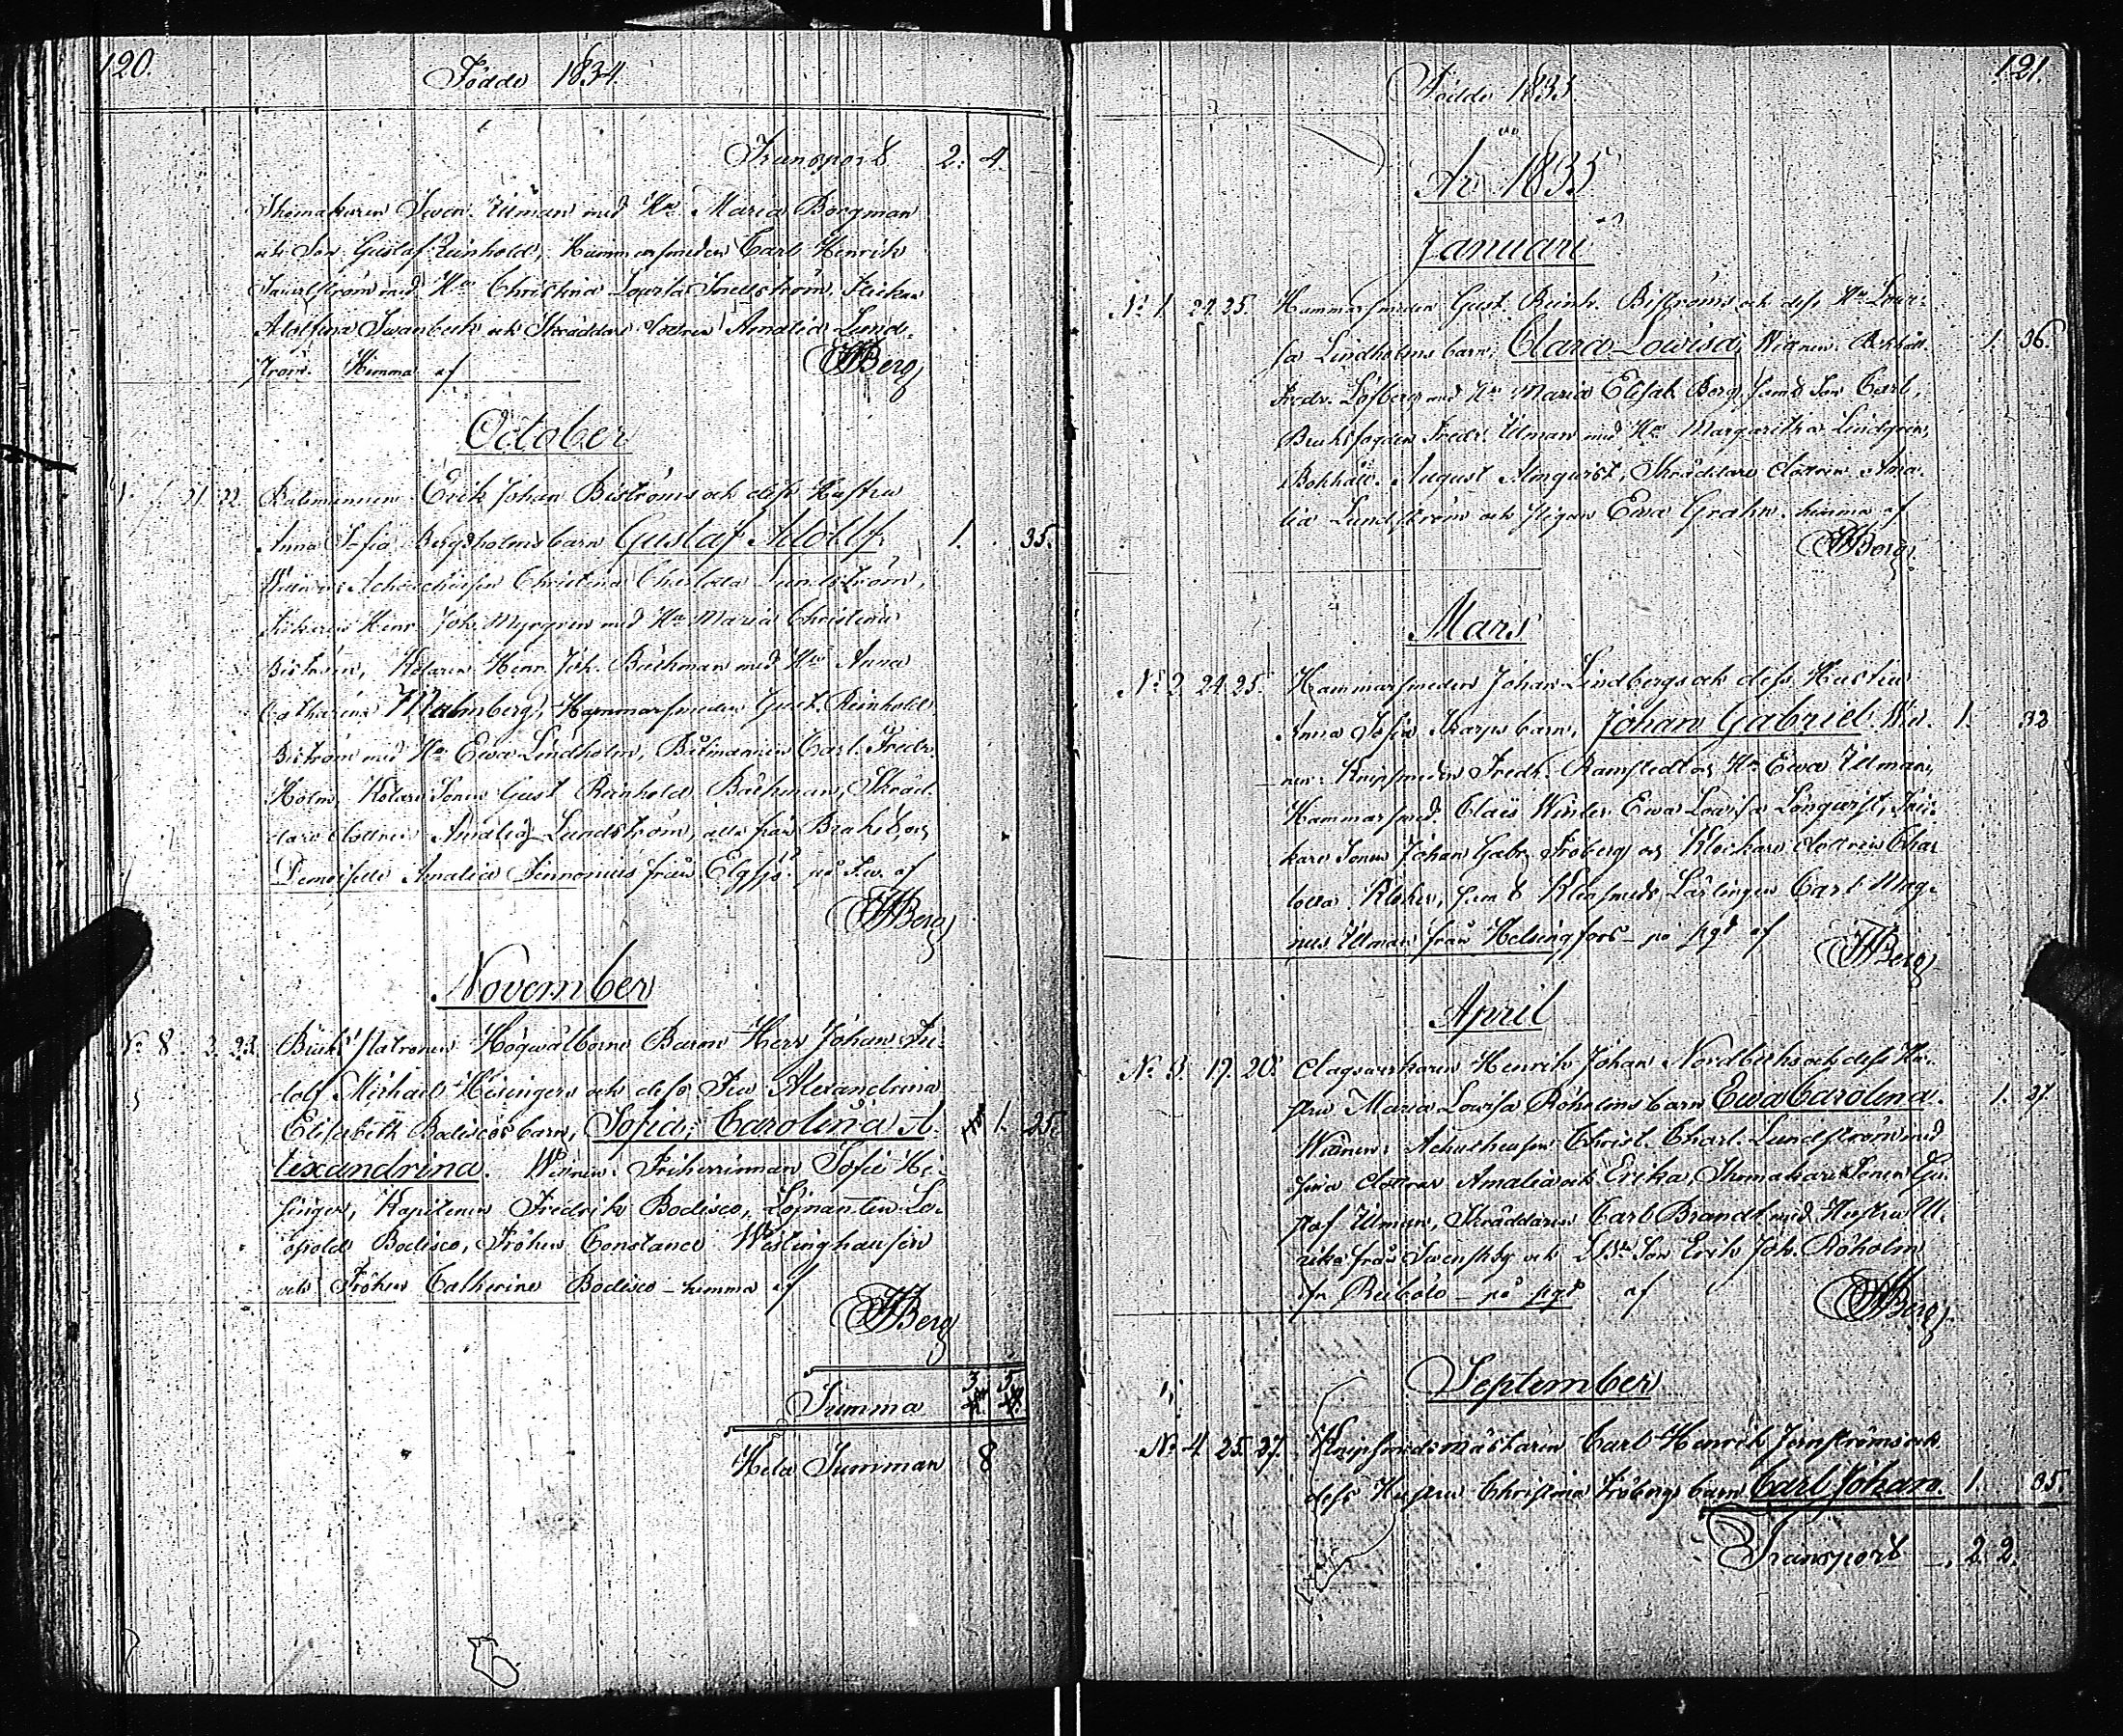 120.
Födde 1834.
Transport 2. 4.
Skomakaren Sven Ulman med Hu Maria Borgman
och Son Gustaf Reinhold, Hammarsmeden Carl Henrik
med Hu Christina Lovisa Flickan
Adolfina Swanbeck och Skräddare Amalia Lund-
ström. Hemma af
Berg
October
21. 22. Erik Johan Biströms och dess Hustru
Anna Sofia Bergholms barn Gustaf Adolf, 1. 35.
Christina Charlotta Lundström,
Henr. Joh. Myrgren med Hu Maria Christina
Biström, Kolaren Henr. Joh. Backman med Hu Anna
Catharina Malmberg, Hammarsmeden Gust. Reinhold
Biström med Hu Ewa Lindholm, Båtmannen Carl Fredr.
Holm, Kolare Sonen Gust Reinhold Backman, Skräd-
dare dottren Amalia Lundström, alla från Bruket och
Demoiselle Amalia från Elgsjö af
Berg
November
No 8. 2. 23. Bruks Patronen Högwälborne Baron Herr Johan Fri-
dolf Michael Hisingers och dess Fru Alexandrina
Elisabeth Bodiscos barn, Sofia, Carolina A- 1. 25.
lexandrina. Wittnen: Friherrinnan Sofie Hi-
singer, Kapitenen Fredrik Bodisco, Löjnanten Le-
opold Bodisco, Fröken Constance Westinghausen
och Fröken Catherine Bodisco - hemma af
Berg
Summa 3 5
Hela Summan 8
121.
Födde 1835.
År 1835
Januari
No 1. 24. 25. Hammarsmeden Gust. Reinh. Biströms och dess Hu Lowi-
sa Lindholms barn, Clara Lowisa, Wittnen: Bokhåll. 1. 36.
Fredr. Löfberg med Hu Maria Elisab. Berg, samt Son Carl,
Bruksfogden Fredr. Ulman med Hu Margaretha Lindgren,
Bokhåll. August Almqvist, Skräddare dottren Ama-
lia Lundström och pigan Ewa Grahn. hemma af
Berg
Mars
No 2 24. 25. Hammarsmeden Johan Lindbergs och dess Hustru
Anna Sofia barn, Johan Gabriel. Wit- 1. 32
nen: Knipsmeden Fredr. Ramstedt och Hu Ewa Ulman,
Hammarsmed. Claës Winter Ewa Lowisa Lönqwist,
kare Sonen Johan Gabr. Fröberg och Klockare dottren Char-
lotta samt Klensmeds Lärlingen Carl Mag-
nus Ulman från Helsingfors - på pgd af
Berg
April
No 3. 19. 20. Dagswerkaren Henrik Johan Nordbecks och dess Hu-
stru Maria Lowisa Röholms barn Ewa Carolina. 1. 27.
Wittnen: Christ. Charl. Lundström med
sina döttrar Amalia och Erika, Skomakare Sonen Gu-
staf Ulman, Skräddaren Carl Brandt med Hustru Ul-
rika från Swenskby och Son Erik Joh. Röholm
ifr. - på pgd af
Berg
September
No 4. 25. 27. Knipsmedsmästaren Carl Henrik Jernströms och
dess Hustru Christina Fröbergs barn Carl Johan. 1. 35.
Transport 2. 2.